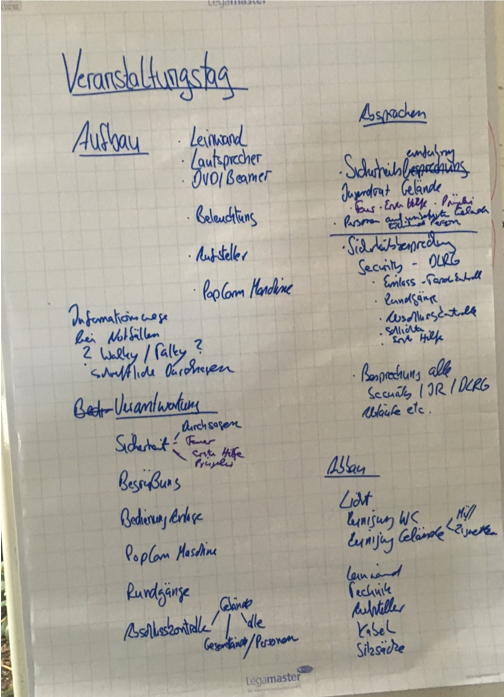 Legamaster
Veranstaltungstag
Aufbau
· Leinwand
· Lautsprecher
· DVD/Beamer
· Beleuchtung
· Aufsteller
· PopCorn Maschine
Informationswege
bei Notfällen
2 Walky/Talky?
schriftliche Durchsagen
Verantwortung
Sicherheit
Durchsagen
Feuer
erste Hilfe
Prügelei
Begrüßung
Bedienung Anlage
PopCorn Maschine
Rundgänge
Abschlusskontrolle
Gelände
alle
Gegenstände/Personen
Absprachen
Sicherheitsbesprechung
einführung
Jugendrat Gelände
· Feuer · Erste Hilfe · Prügelei
· Personen auf
Person
· Sicherheitsbesprechung
Security - DLRG
· Einlass - Taschenkontrolle
· Rundgänge
· Abschlusskontrolle
· Erste Hilfe
· Besprechung alle
Security / JR / DLRG
Abläufe etc.
Abbau
Licht
Reinigung WC
Reinigung Gelände
Müll
Zigaretten
Leinwand
Technik
Aufsteller
Kabel
Sitzsäcke
Legamaster